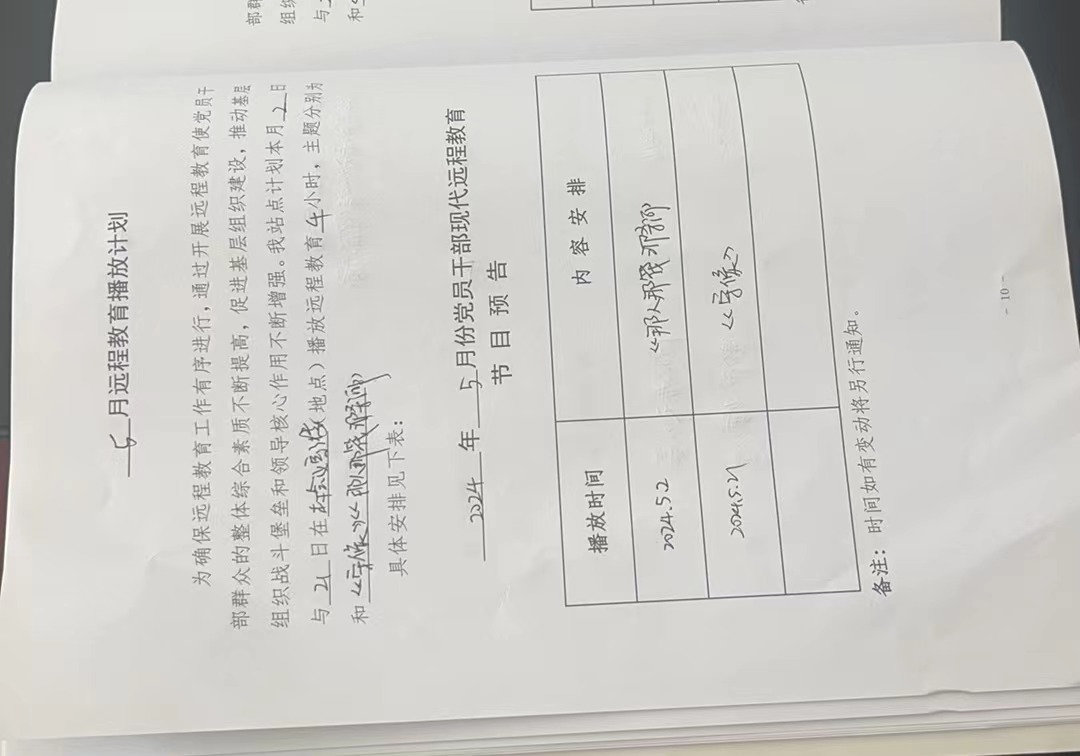 5 月远程教育播放计划
为确保远程教育工作有序进行，通过开展远程教育使党员干
部群众的整体综合素质不断提高，促进基层组织建设，推动基层
组织战斗堡垒和领导核心作用不断增强。我站点计划本月 2 日
与 21 日在 (地点）播放远程教育 小时，主题分别为
和 《 》《那人那 那 》
具体安排见下表：
2024 年 5 月份党员干部现代远程教育
节 目 预 告
播放时间 内 容 安 排
2024.5.2 《那人那 那 》
2024.5.21 《 》
备注： 时间如有变动将另行通知。
- 10 -
部群
组织
与
和